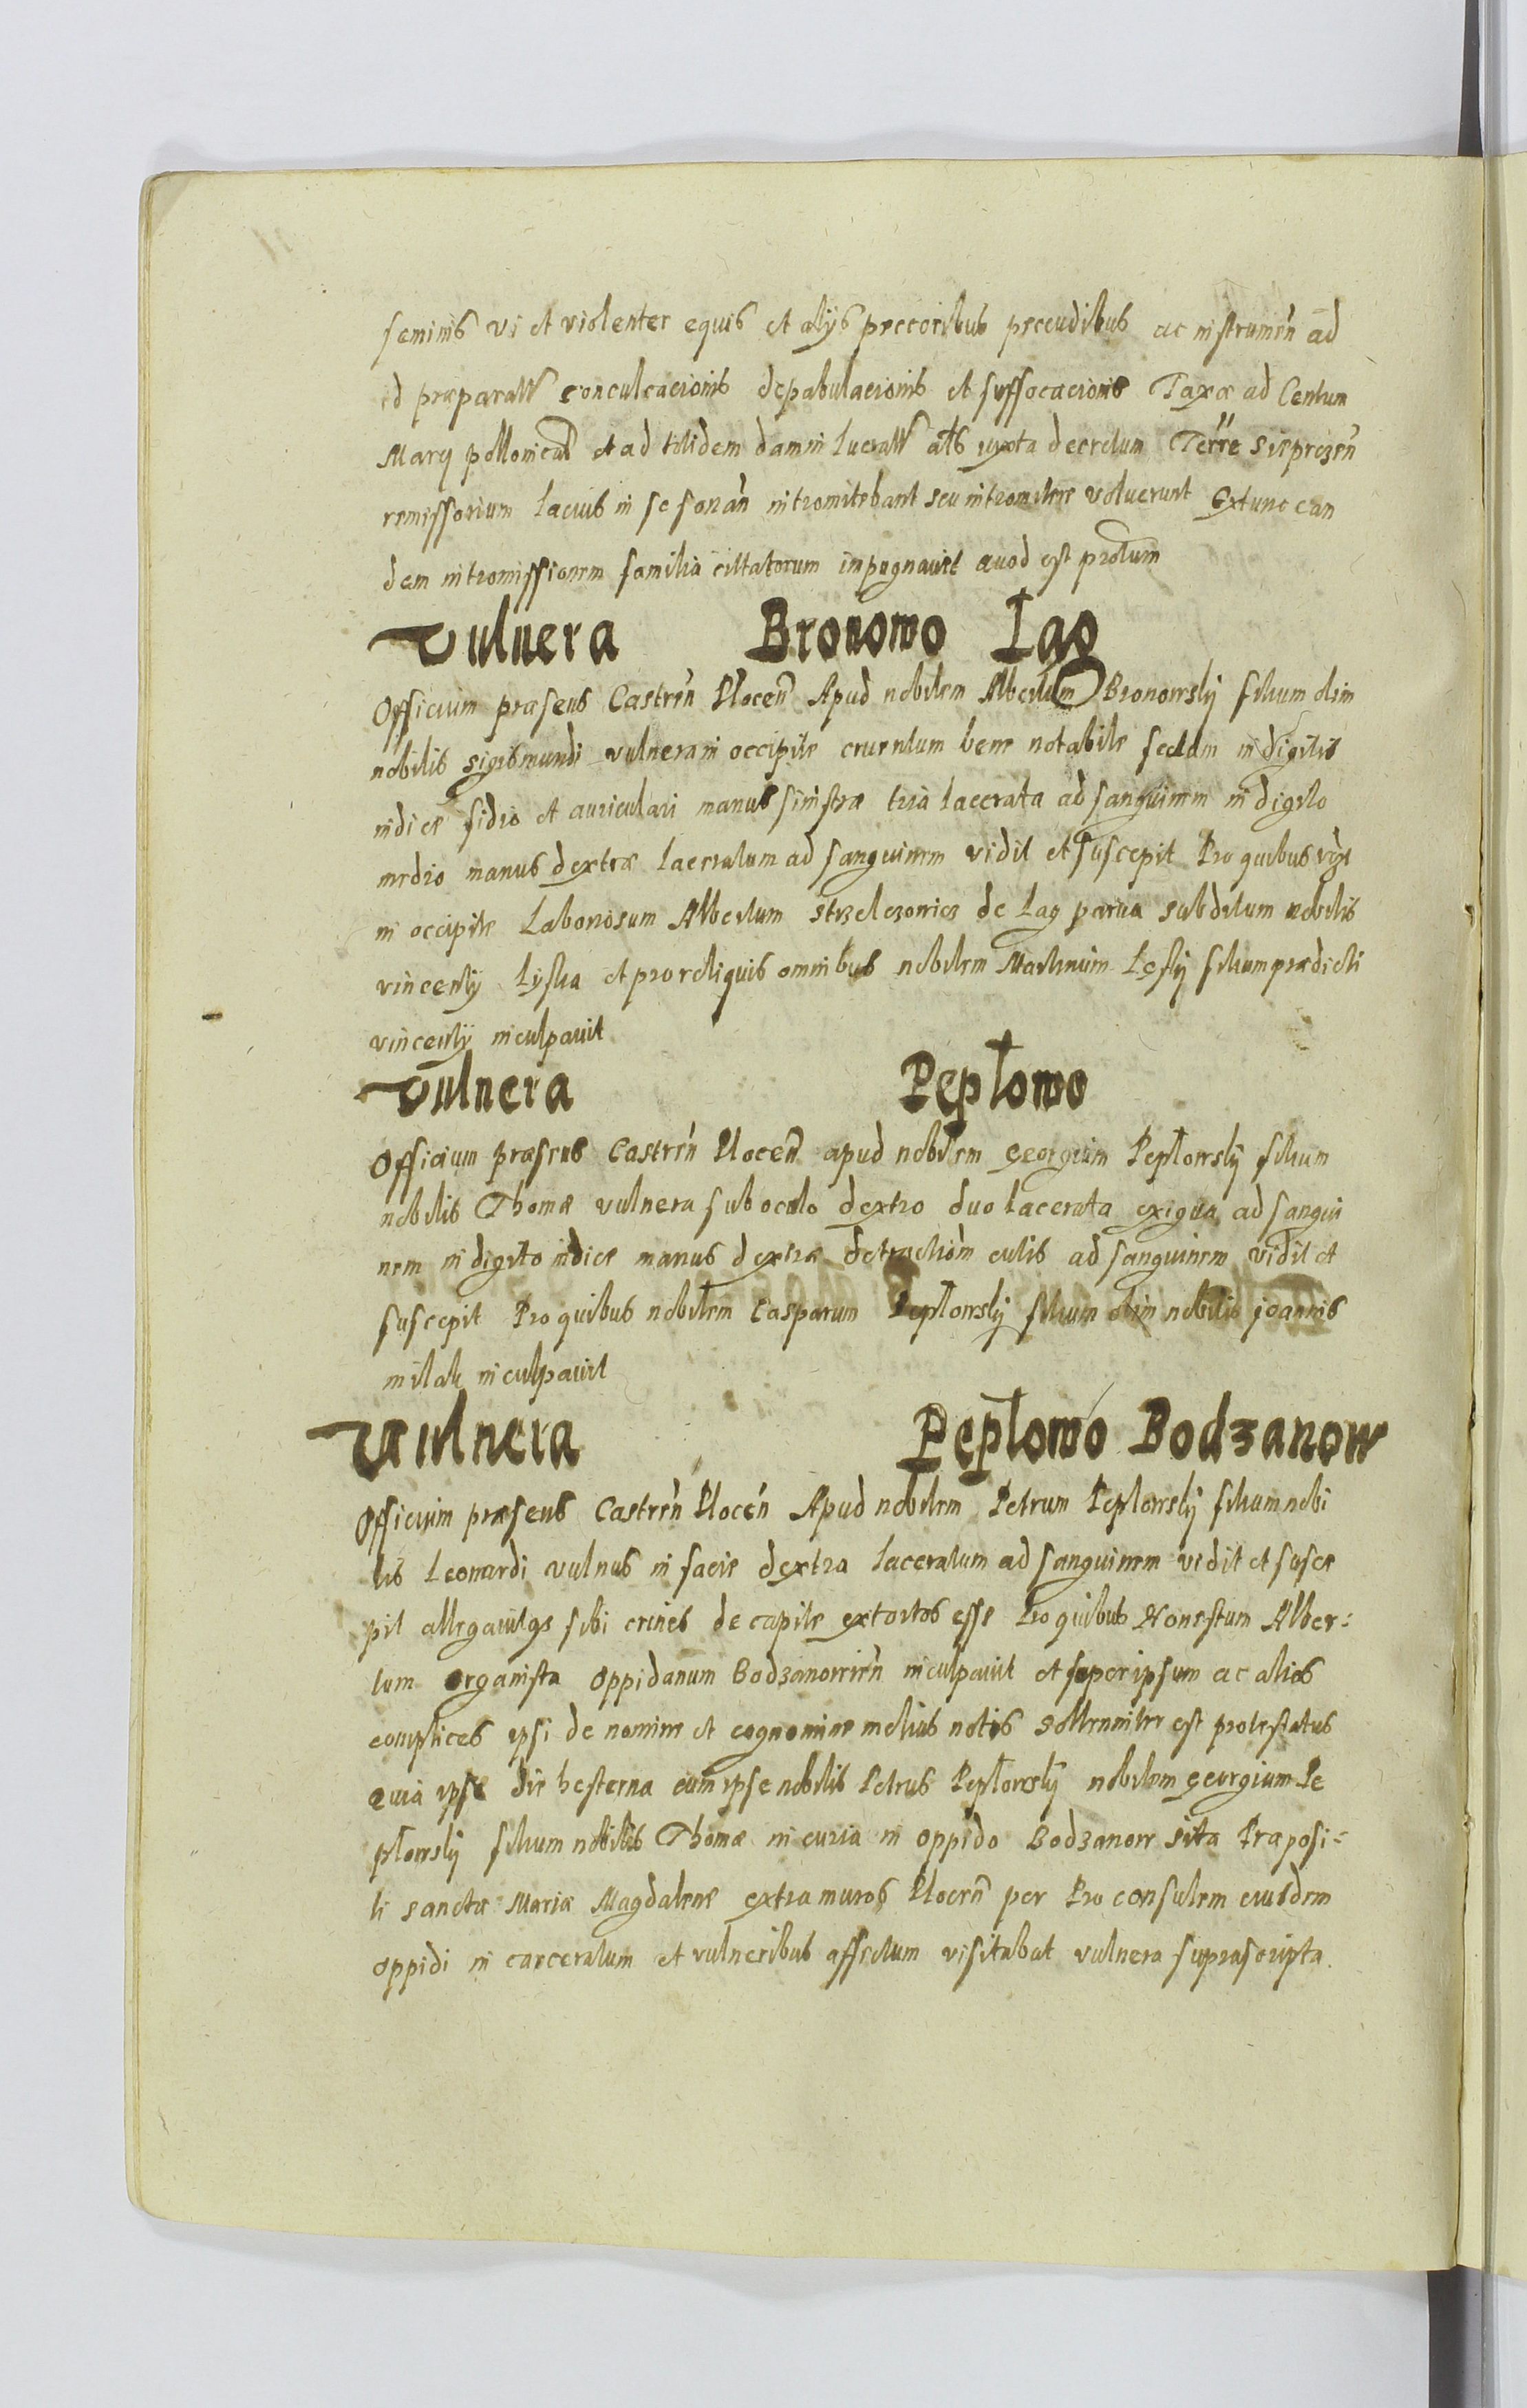 seminis vi et violenter equis et alijs peccoribus pecudibus ac instrumen ad
id præparatt conculcacionis depabulacionis et suffocacionis Taxæ ad Centum
Marcs pollonical et ad totidem damni lucratt als iuxta decretum Terre
remissorium lacius in se sonan intromitebant seu intromitere voluerunt Extunc ean
dem intromissionem familia cittatorum inpugnauit quod est protum
Vulnera Bronowo Lag
Officium præsens Castren Plocen Apud nobilem Albertum Bronowskj filium olim
nobilis sigismundi vulnera in occipite cruentum bene notabile sectum in digitis
indice fidio et auriculari manus sinistræ tria lacerata ad sanguinem in digito
medio manus dextræ laceratum ad sanguinem vidit et suscepit Pro quibus
in occipite Laboriosum Albertum strzelczowicz de Lag parua subditum nobilis
vincentij Lyska et pro reliquis omnibus nobilem Martinum Leskj filium prædicti
vincentij inculpauit
Vulnera Pepłowo
Officium præsens Castren Plocen apud nobilem georgium Pepłowskj filium
nobilis Thomæ vulnera sub oculo dextro duo lacerata exigua ad sangui
nem in digito indice manus dextræ detractiom cutis ad sanguinem vidit et
suscepit Pro quibus nobilem Casparum Pepłowskj filium olim nobilis joannis
mitak inculpauit
Vulnera Pepłowo Bodzanow
Officium præsens Castren Plocen Apud nobilem Petrum Peplowskj filium nobi
lis Leonardi vulnus in facie dextra laceratum ad sanguinem vidit et susce
pit allegauitqs sibi crines de capite extortos esse Pro quibus Honestum Alber:
tum organista oppidanum Bodzanowien inculpauit et super ipsum ac alios
complices ipsi de nomine et cognomine melius notos sollenniter est protestatus
Quia ipse die hesterna cum ipse nobilis Petrus Pepłowskj nobilem georgium Pe
płowskj filium nobilis Thomæ in curia in oppido Bodzanow sita Præposi:
ti sanctæ Mariæ Magdalene extra muros Plocen per Pro consulem eiusdem
oppidi in carceratum et vulneribus affectum visitabat vulnera suprascripta